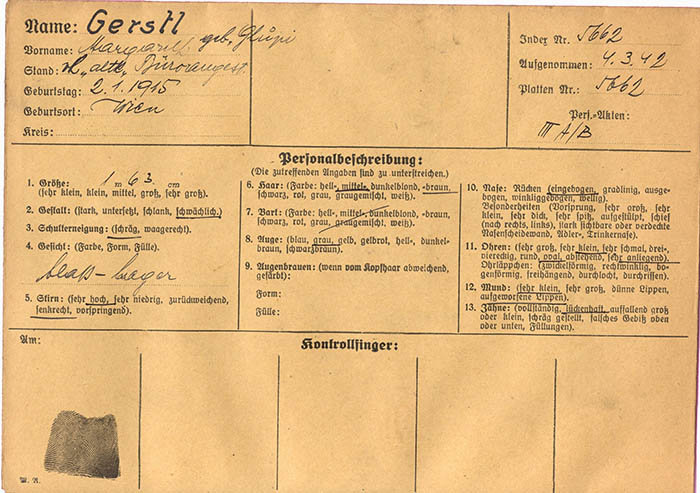 Name: Gerstl
Vorname: Margarete geb.
Stand: Büroangest.
Geburtstag: 2.1.1915
Geburtsort: Wien
Kreis:
Index Nr. 5662
Aufgenommen: 4.3.42
Platten Nr.: 5662
Pers.-Akten:
III A/B
Personalbeschreibung:
(Die zutreffenden Angaben sind zu unterstreichen.)
1. Größe: 1 m 63 cm
(sehr klein, klein, mittel, groß, sehr groß).
2. Gestalt: (stark, untersetzt, schlank, schwächlich.)
3. Schulterneigung: (schräg, waagerecht).
4. Gesicht: (Farbe, Form, Fülle).
blaß – hager
5. Stirn: (sehr hoch, sehr niedrig, zurückweichend,
senkrecht, vorspringend).
6. Haar: (Farbe: hell-, mittel-, dunkelblond, -braun,
schwarz, rot, grau, graugemischt, weiß).
7. Bart: (Farbe: hell-, mittel-, dunkelblond, -braun,
schwarz, rot, grau, graugemischt, weiß).
8. Auge: (blau, grau, gelb, gelbrot, hell-, dunkel-
braun, schwarzbraun).
9. Augenbrauen: (wenn vom Kopfhaar abweichend,
gefärbt):
Form:
Fülle:
10. Nase: Rücken (eingebogen, gradlinig, ausge-
bogen, winkliggebogen, wellig).
Besonderheiten (Vorsprung, sehr groß, sehr
klein, sehr dick, sehr spitz, aufgestülpt, schief
(nach rechts, links), stark sichtbare oder verdeckte
Nasenscheidewand, Adler-, Trinkernase).
11. Ohren: (sehr groß, sehr klein, sehr schmal, drei-,
viereckig, rund, oval, abstehend, sehr anliegend).
Ohrläppchen: (zwickelförmig, rechtwinklig, bo-
genförmig, freihängend, durchlocht, durchrissen).
12. Mund: (sehr klein, sehr groß, dünne Lippen,
aufgeworfene Lippen).
13. Zähne: (vollständig, lückenhaft, auffallend groß
oder klein, schräg gestellt, falsches Gebiß oben
oder unten, Füllungen).
Am:
Kontrollfinger: